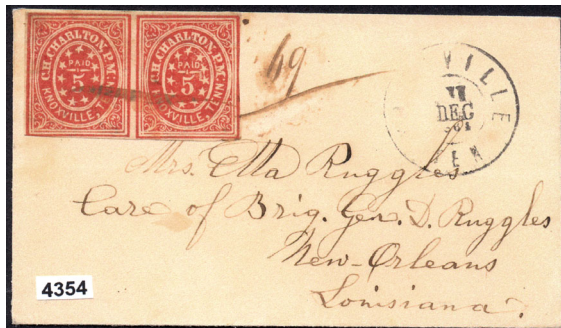 C.H. CHARLTON. P.M.
PAID
5
KNOXVILLE, TENN.
C.H. CHARLTON. P.M.
PAID
5
KNOXVILLE, TENN.
69
VILLE
11
DEC
TEN
Mrs. Ella Ruggles
Care of Brig. Gen. D. Ruggles
New-Orleans
Louisiana.
4354